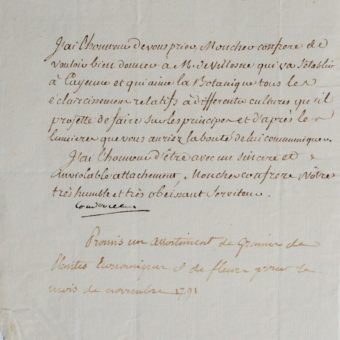 J'ai l'honneur de vous prier, Mon cher confrere de
vouloir bien donner à M. de Villosne qui va s'etablir
à Cayenne et qui aime la Botanique tous les
éclaircissemens relatifs à differentes cultures qu'il
projette de faire sur les principes et d'après les
lumieres que vous auriez la bonté de lui communiquer.
J'ai l'honneur d'être avec un sincere et
inviolable attachement, Mon cher confrere Votre
très humble et très obeissant Serviteur
Condorcet
Promis un assortiment de Graines de
Plantes Economiques & de fleurs pour le
mois de novembre 1791